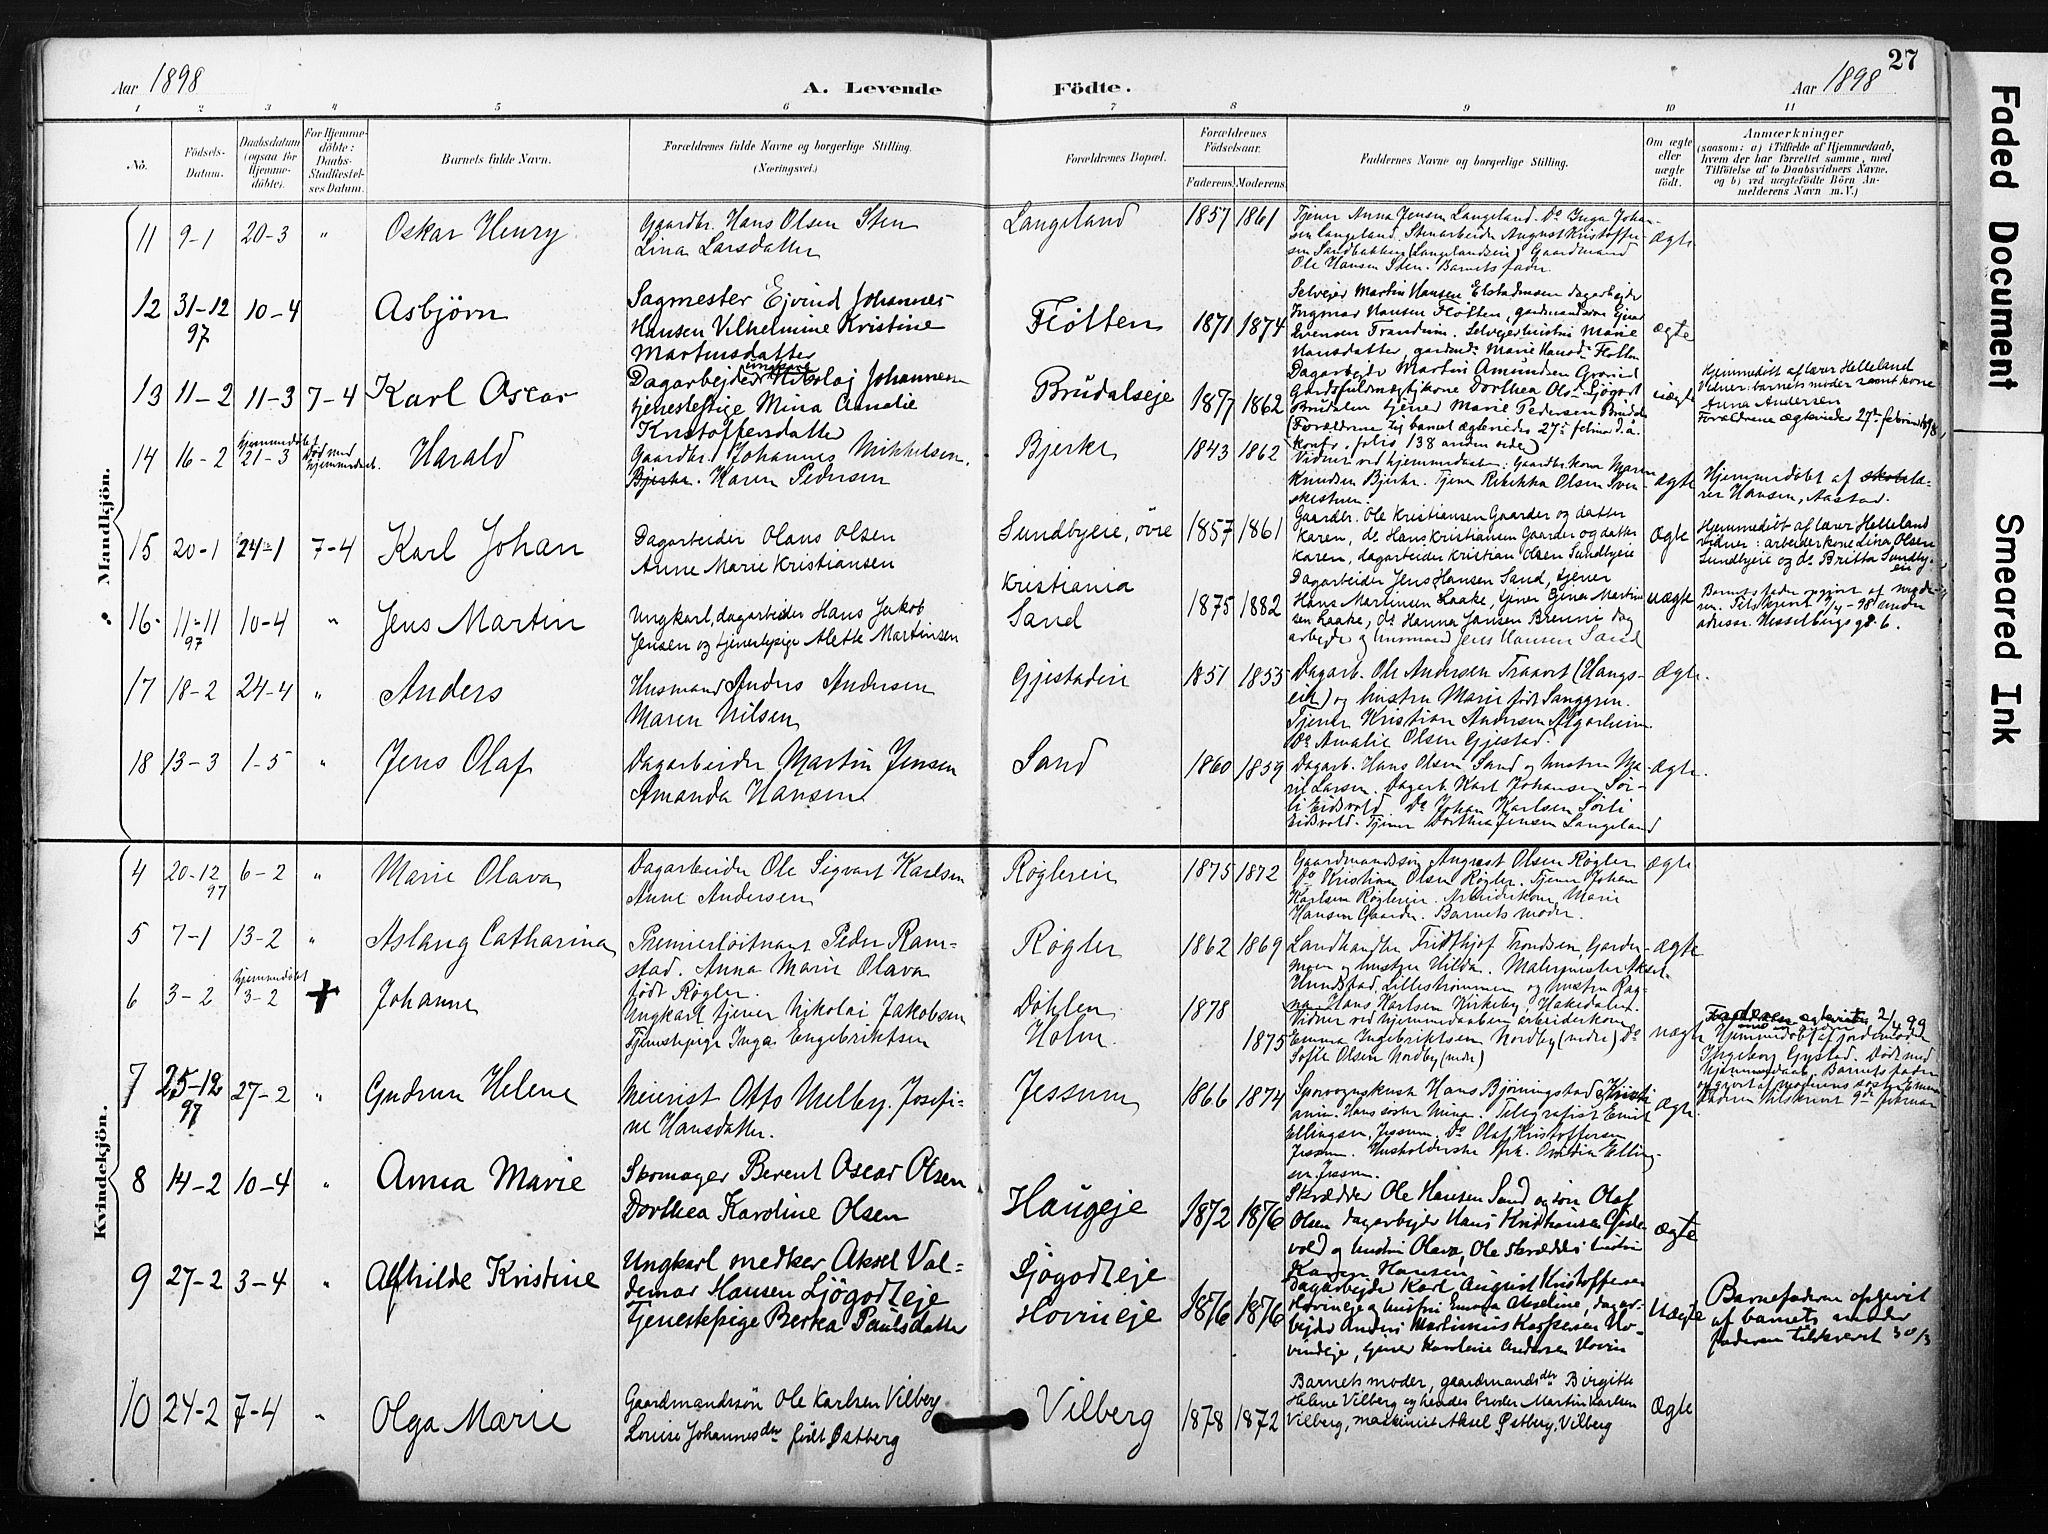 27
Aar 1898
A. Levende
Födte.
Aar 1898
1 2 3 4 5 6 7 8 9 10 11
No.
Födsels-
Datum.
Daabsdatum
(ogsaa for
Hjemme-
döbte).
For Hjemme-
döbte:
Daabs-
Stadfæstel-
ses Datum.
Barnets fulde Navn.
Forældrenes fulde Navne og borgerlige Stilling.
(Næringsvei.)
Forældrenes Bopæl.
Forældrenes
Födselsaar.
Faderens. Moderens.
Faddernes Navne og borgerlige Stilling.
Om ægte
eller
uægte
födt.
Anmærkninger
(saasom: a) i Tilfælde af Hjemmedaab,
hvem der har forrettet samme, med
Tilföielse af to Daabsvidners Navne,
og b) ved uægtefödte Börn An-
melderens Navn m. V.)
Mandkjön.
11 9-1 20-3 " Oskar Henry
Gaardbr. Hans Olsen Sten
Lina Larsdatter
Langeland 1857 1861
Tjener Anna Jensen Langeland. Do Inga Johan-
sen Langeland. Stenarbeider August Kristoffer-
sen Sandbakken (Langelandseie) Gaardmand
Ole Hansen Sten. Barnets fader.
Ægte
12 31-12 97 10-4 Asbjörn
Sagmester Ejvind Johannes
Hansen Vilhelmine Kristine
Martinsdatter
Flötten 1871 1874
Selvejer Martin Hansen dagarbejder
Ingmar Hansen Flötten, gaardmandssön Ejner
Svensen Trandum. Selvejerhustru Marie
Hansdatter, gardmd. Marie Hansd. Flötten
ægte
13 11-2 11-3 7-4 Karl Oscar
Dagarbejder ungkarl Nikolaj Johannesen
tjenestepige Mina Amalie
Kristoffersdatter
Brudalseje 1877 1862
Dagarbejder Martin Amundsen
Dorthea Olsdr Sjögodt
Brudalen tjener Marie Pedersen Brudalen
(Forældrene til barnet ægteviedes 27de februar d.a.
konfr. folio 138 anden side)
uægte
Hjemmedöbt af lærer Helleland
Vidner: barnets moder samt kone
Anna Andersen
Forældrene ægteviedes 27de februar 1898
14 16-2 hjemmedöbt 21-3 Död med hjemmedaab. Harald
Gaardbr. Johannes Mikkelsen
Bjerke. Karen Pedersen
Bjerke 1843 1862
Vidner ved hjemmedaaben: Gaardbr.kone Maren
Knudsen Bjerke. Tjener Rebekka Olsen Sven-
skestuen.
Ægte
Hjemmedöbt af skolelæ-
rer Hansen, Aastad.
15 20-1 24-1 7-4 Karl Johan
Dagarbeider Olaus Olsen
Anne Marie Kristiansen
Sundbyeie, övre 1857 1861
Gaardbr. Ole Kristiansen Gaarder og datter
Karen, do Hans Kristiansen Gaarder og datter
Karen, dagarbeider Kristian Olsen Sundbyeie
Ægte
Hjemmedöbt af lærer Helleland
vidner: arbeiderkone Lina Olsen
Sundbyeie og do Britta Sundby-
eie
16 11-11 97 10-4 " Jens Martin
Ungkarl, dagarbeider Hans Jakob
Jensen og tjenestepige Alette Martinsen
Kristiania
Sand 1875 1882
Dagarbeider Jens Hansen Sand, tjener
Hans Martinsen Laake, tjener Ejner Martin-
sen Laake, do Hanna Jensen Brenni, dag
arbejder og husmand Jens Hansen Sand
uægte
Barnefader opgivet af mode-
ren. Tilskrevet 14/4-98 under
adresse Hesselbergs gd. 6.
17 18-2 24-4 " Anders
Husmand Anders Andersen
Maren Nilsen
Gjestadeie 1851 1855
Dagarb. Ole Andersen Traavet (Haugs-
eie) og hustru Marie född Sanggren.
Tjener Kristian Andersen Algarheim
Do Amalie Olsen Gjestad.
Ægte.
18 13-3 1-5 " Jens Olaf
Dagarbeider Martin Jensen
Amanda Hansen
Sand 1860 1859
Dagarb. Hans Olsen Sand og hustru Ma-
rie Larsen. Dagarb. Karl Johansen Sör-
li Eidsvold. Do Johan Karlsen Sörli
Eidsvold. Tjener Dorthea Jensen Langeland
Ægte.
Kvindekjön.
4 20-12 97 6-2 " Marie Olava
Dagarbeider Ole Sigvart Karlsen
Anne Andersen
Røglereie 1875 1872
Gaardmandssøn August Olsen Røgler
Do Kristian Olsen Røgler. Tjener Johan
Karlsen Røglereie. Arbeiderkone Marie
Hansen Gaarder. Barnets moder.
Ægte
5 7-1 13-2 " Aslaug Catharina
Premierløitnant Peder Ram-
stad. Anna Marie Olava
født Røgler.
Røgler 1862 1869
Landhandler Fridthjof Trondsen, Garder-
moen og hustru Hilda. Malermester Aksel
Hundstad, Lillestrømmen og hustru Rag-
na. Hans Karlsen Kirkeby, Hakedalen.
Ægte
6 3-2 hjemmedöbt 3-2 + Johanne
Ungkarl tjener Nikolai Jakobsen
Tjenestepige Inga Engebriktsen
Döhlen
Holm. 1878 1875
Vidner ved hjemmedaaben arbeiderkone
Emma Ingebriktsen Nordby (nedre) Do
Sofie Olsen Nordby (nedre)
uægte
2/4 99
Hjemmedöbt af jordemoder
Ingeborg Gystad. Död med
hjemmedaab. Barnefader
opgivet af moderens søster Emma
Faderen tilskrevet 9de februar
7 25-12 97 27-2 " Gudrun Helene
Meierist Otto Melby. Josefi-
ne Hansdatter.
Jessum 1866 1874
Sporvognskusk Hans Bjørningstad, Kristi-
ania. Hans søster Mina. Telegrafist Emil
Ellingsen, Jessum. Do Olaf Kristoffersen
Jessum. Husholderske frk. Ovidia Elling-
sen Jessum.
Ægte
8 14-2 10-4 " Anna Marie
Skomager Berent Oscar Olsen
Dorthea Karoline Olsen
Haugeje 1872 1876
Skrædder Ole Hansen Sand og søn Olaf
Olsen dagarbejder Hans Kristiansen Ejds-
vold og hustru Olava, Ole skrædders hustru
Karen Hansen
Ægte
9 27-2 3-4 " Alfhilde Kristine
Ungkarl snedker Aksel Val-
demar Hansen Sjögodteje
Tjenestepige Berta Paulsdatter
Sjögodteje
Hovineje 1876 1876
Dagarbejder Karl August Kristoffersen
Hovineje og hustru Emma Aseline, dagar-
bejder Anders Martinius Kaspersen Ho-
vineje, tjener Karoline Andersen Hovin
Uægte
Barnefaderen opgivet
af barnets moder
faderen tilskrevet 30/3
10 24-2 7-4 " Olga Marie
Gaardmandssön Ole Karlsen Vilberg
Louise Johannesdtr født Østberg
Vilberg 1878 1872
Barnets moder, gaardmandsdtr Birgitte
Helene Vilberg og hendes broder Martin Karlsen
Vilberg, maskinist Aksel Østberg, Vilberg
Ægte
Faded Document
Smeared Ink